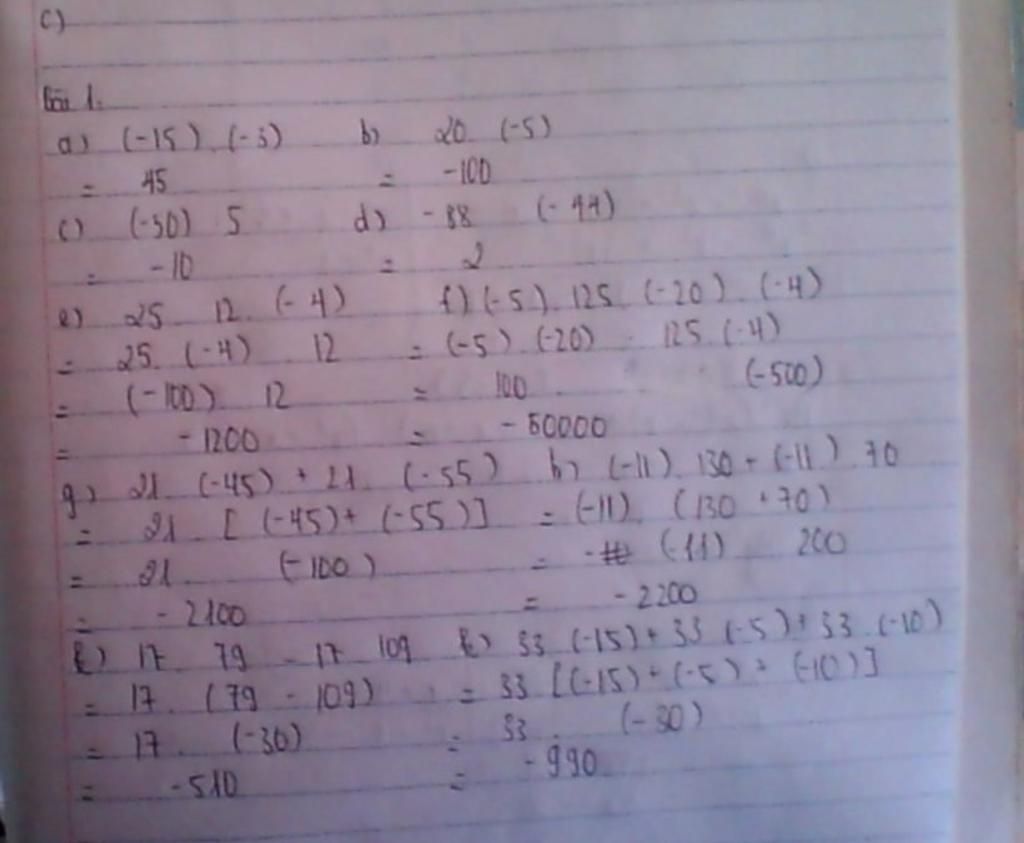 c)
Bài 1.
a) (-15). (-3) b) 20 (-5)
= 45 = -100
c) (-50) 5 d) -88 (-44)
= -10 = 2
e) 25 12. (-4) f) (-5). 125. (-20). (-4)
= 25. (-4) 12 = (-5) (-20) . 125. (-4)
= (-100). 12 = 100 (-500)
= -1200 = -50000
g) 21. (-45) + 21. (-55) h) (-11). 130 + (-11). 70
= 21. [(-45)+ (-55)] = (-11). (130 + 70)
= 21 (-100) = (-11) 200
= -2100 = -2200
17 79 - 17 109 k) 33 (-15)+ 33 (-5)+ 33. (-10)
= 17. (79 - 109) = 33 [(-15)+(-5) + (-10)]
= 17. (-30) = 33. (-30)
= -510 = -990